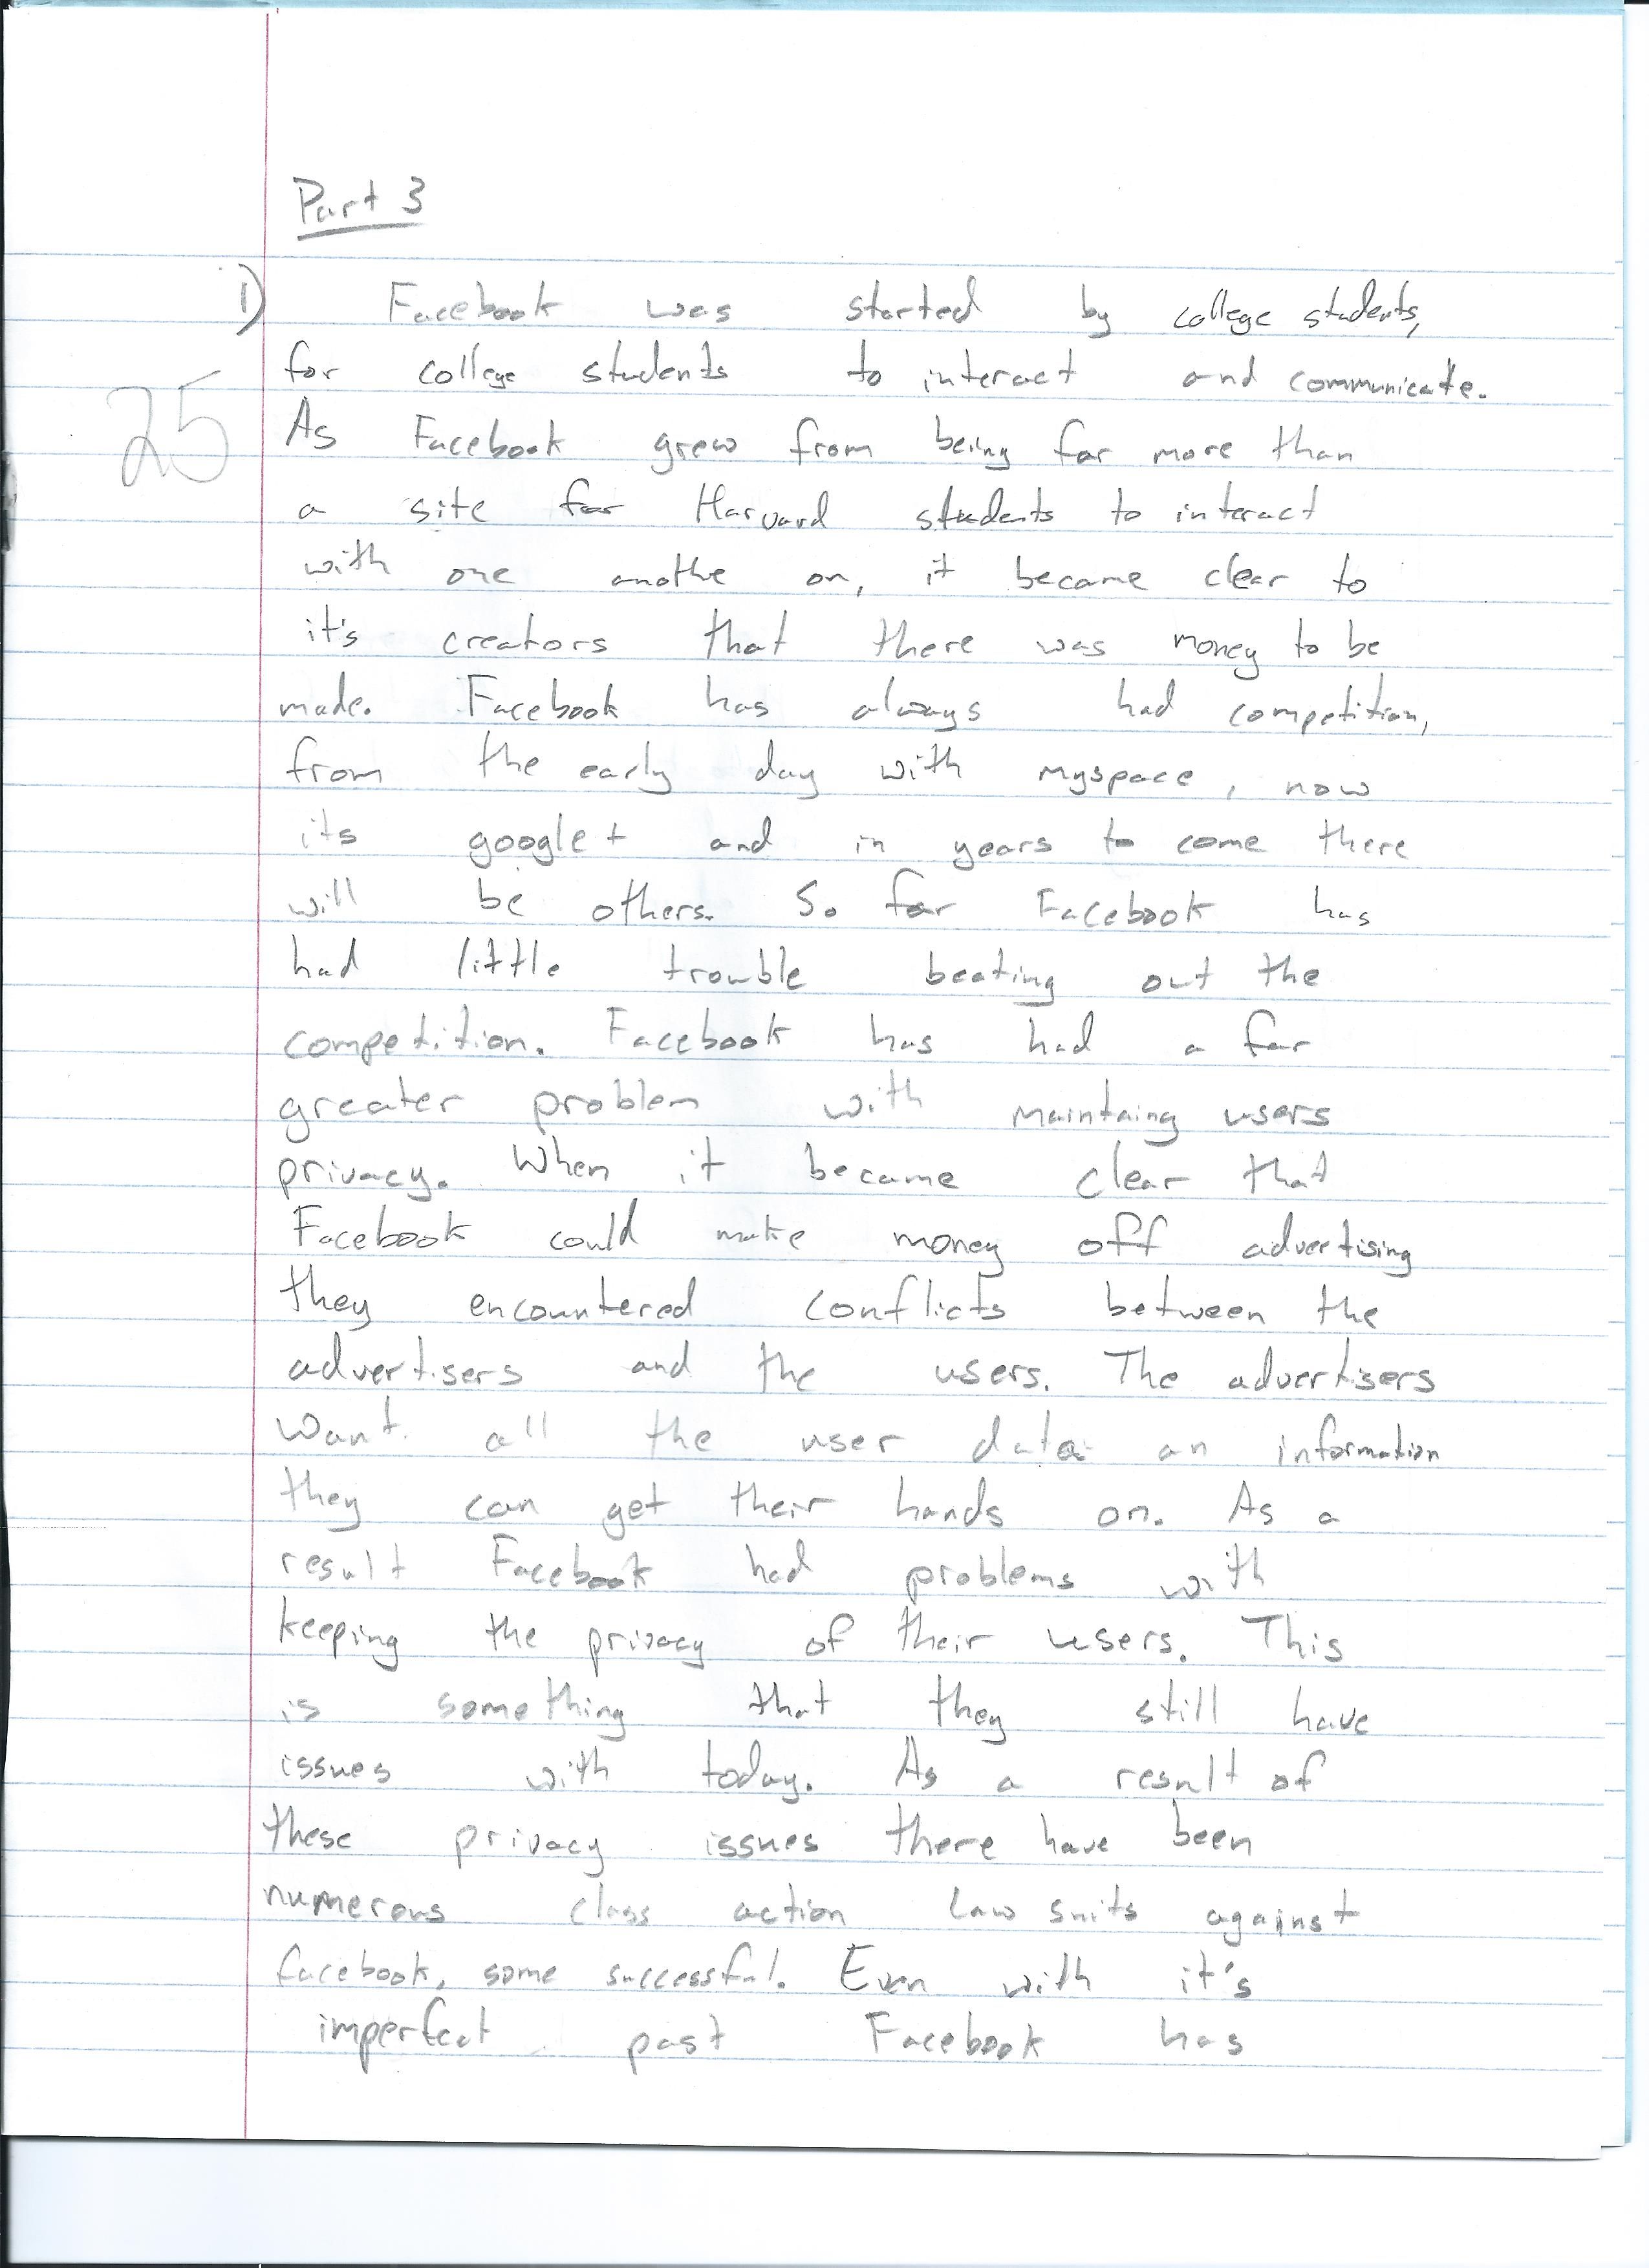 Part 3
1) Facebook was started by college students,
for college students to interact and communicate.
25
As Facebook grew from being far more than
a site for Harvard students to interact
with one anothe on, it became clear to
it's creators that there was money to be
made. Facebook has always had competition,
from the early day with myspace, now
its google+ and in years to come there
will be others. So far Facebook has
had little trouble beating out the
competition. Facebook has had a far
greater problem with maintaing users
privacy. When it became clear that
Facebook could make money off advertising
they encountered conflicts between the
advertisers and the users. The advertisers
want all the user data an information
they can get their hands on. As a
result Facebook had problems with
keeping the privacy of their users. This
is something that they still have
issues with today. As a result of
these privacy issues there have been
numerous class action law suits against
facebook, some successful. Even with it's
imperfect past Facebook has